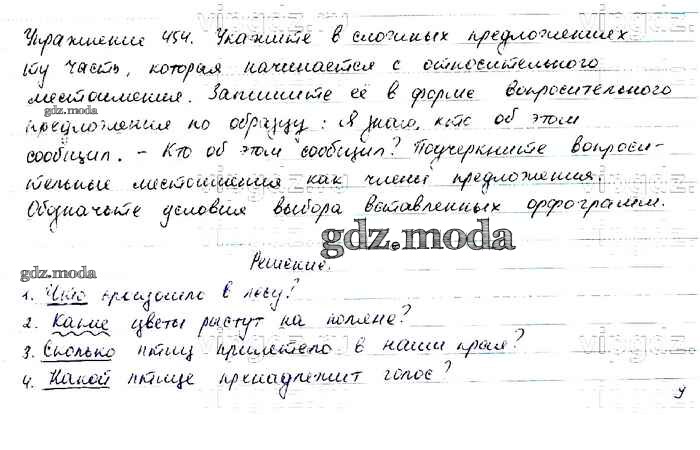 Упражнение 454. Укажите в сложных предложениях
ту часть, которая начинается с относительного
местоимения. Запишите её в форме вопросительного
gdz.moda
предложения по образцу: Я знаю, кто об этом
сообщил. – Кто об этом сообщил? Подчеркните вопроси-
тельные местоимения как члены предложения.
Обозначьте условия выбора вставленных орфограмм.
gdz.moda
Решение.
gdz.moda
1. Что произошло в лесу?
2. Какие цветы растут на поляне?
3. Сколько птиц прилетело в наши края?
4. Какой птице принадлежит голос?